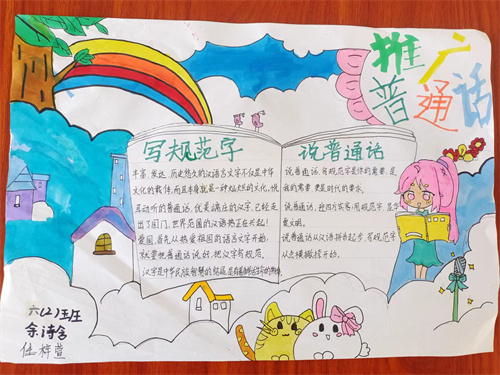 推广
普通话
写规范字
丰富、发达、历史悠久的汉语言文字不仅是中华
文化的载体,而且本身就是一种灿烂的文化,悦
耳动听的普通话,优美端庄的汉字,已经走
出了国门,世界范围的汉语热正在兴起!
爱国,首先从热爱祖国的语言文字开始,
就要把普通话说好,把汉字写规范。
汉字是中华民族智慧的结晶,是
说普通话
说普通话,写规范字是你的需要,是
我的需要,更是时代的要求。
说普通话,迎四方宾客;用规范字,显
爱文明。
说普通话从汉语拼音起步,写规范字
从点横撇捺开始。
六(2)班
余诗含
任梓萱